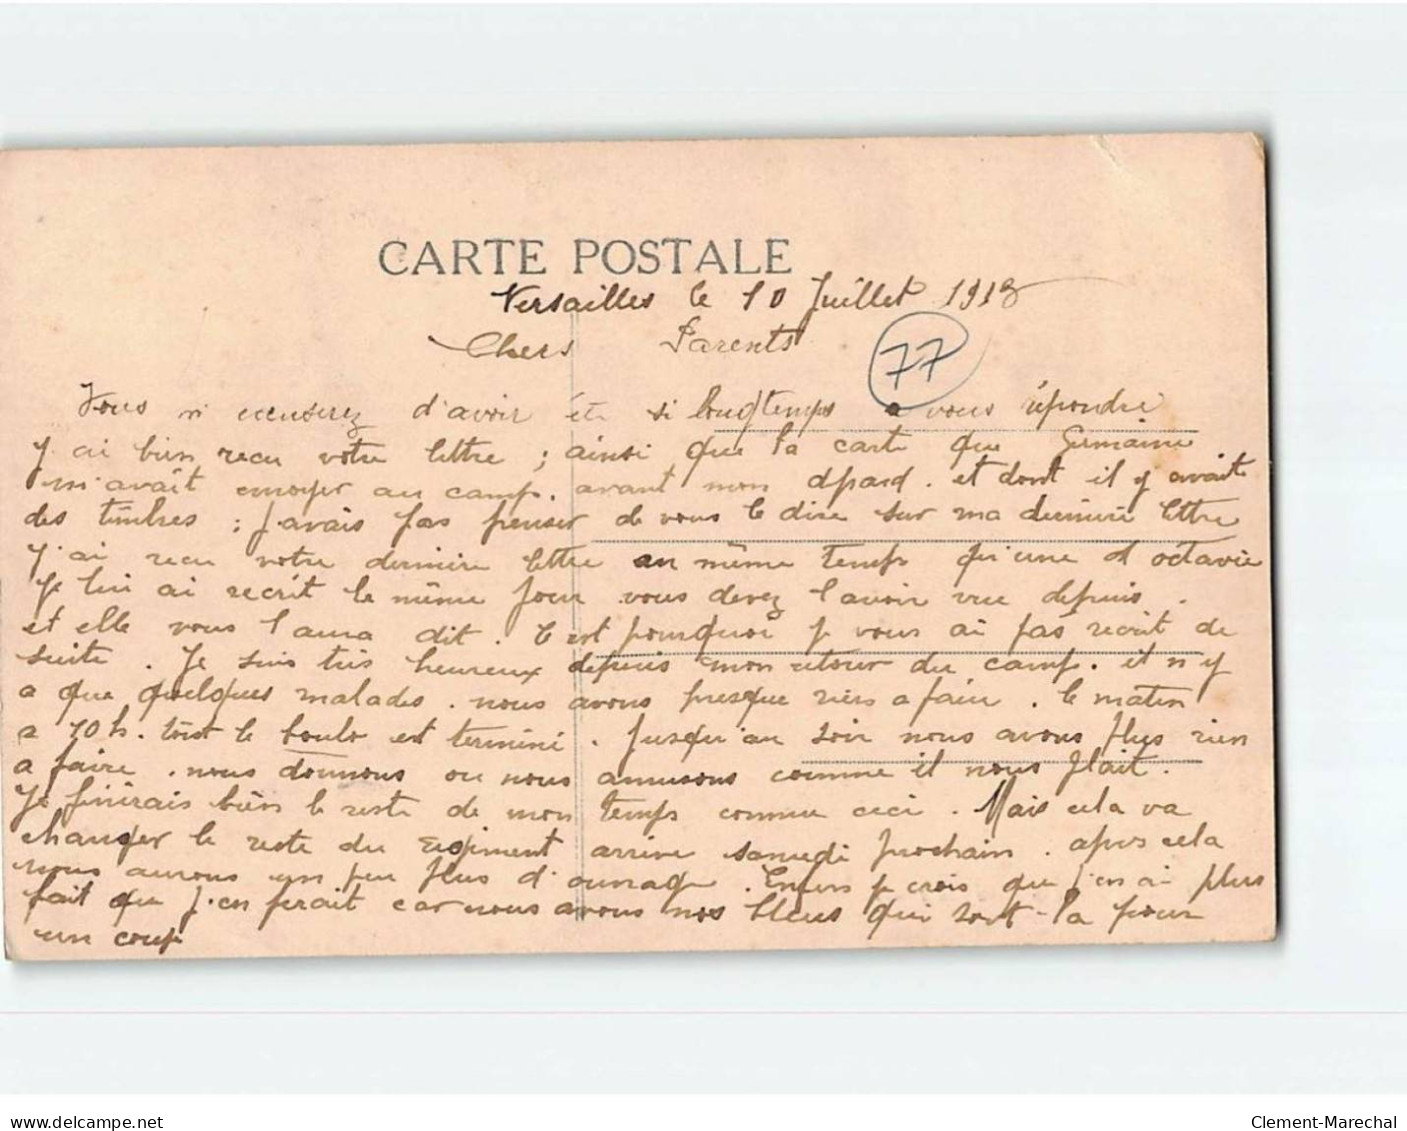 CARTE POSTALE
Versailles le 10 Juillet 1913
Chers Parents
77
Vous m excuserez d'avoir été si longtemps a vous répondre
J ai bien recu votre lettre ; ainsi que la carte que Germaine
m'avait envoyer au camp. avant mon dpard. et dont il y avait
des timbres ; J avais pas penser de vous le dire sur ma derniere lettre
J'ai recu votre derniere lettre au même temps qu'une d octavie
Je lui ai recrit le même Jour vous devez l'avoir vue depuis.
et elle vous l aura dit. C est pourquoi je vous ai pas recrit de
suite. Je suis tres heureux depuis mon retour du camp. il n y
a que quelques malades. nous avons presque rien a faire. le matin
a 10 h. tout le boulo est terminé. Jusqu'au soir nous avons plus rien
a faire. nous dormons ou nous amusons comme il nous plait.
Je finirais bien le reste de mon temps comme ceci. Mais cela va
changer le reste du regiment arrive samedi prochain. apres cela
nous aurons un peu plus d'ouvrage. Enfin je crois que j'en ai plus
fait que j'en ferait car nous avons nos bleus qui sont-la pour
un coup
www.delcampe.net
Clement-Marechal